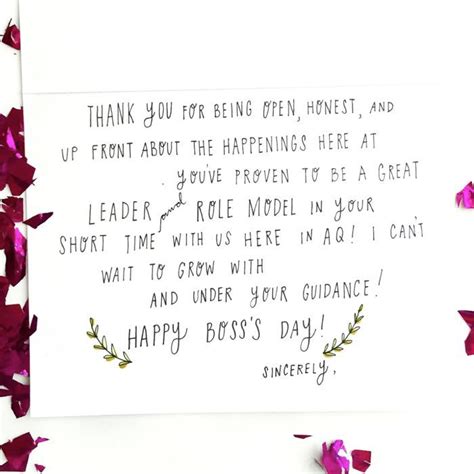 THANK YOU FOR BEING OPEN, HONEST, AND
UP FRONT ABOUT THE HAPPENINGS HERE AT
. YOU'VE PROVEN TO BE A GREAT
LEADER and ROLE MODEL IN YOUR
SHORT TIME WITH US HERE IN AQ! I CAN'T
WAIT TO GROW WITH
AND UNDER YOUR GUIDANCE!
HAPPY BOSS'S DAY!
SINCERELY,